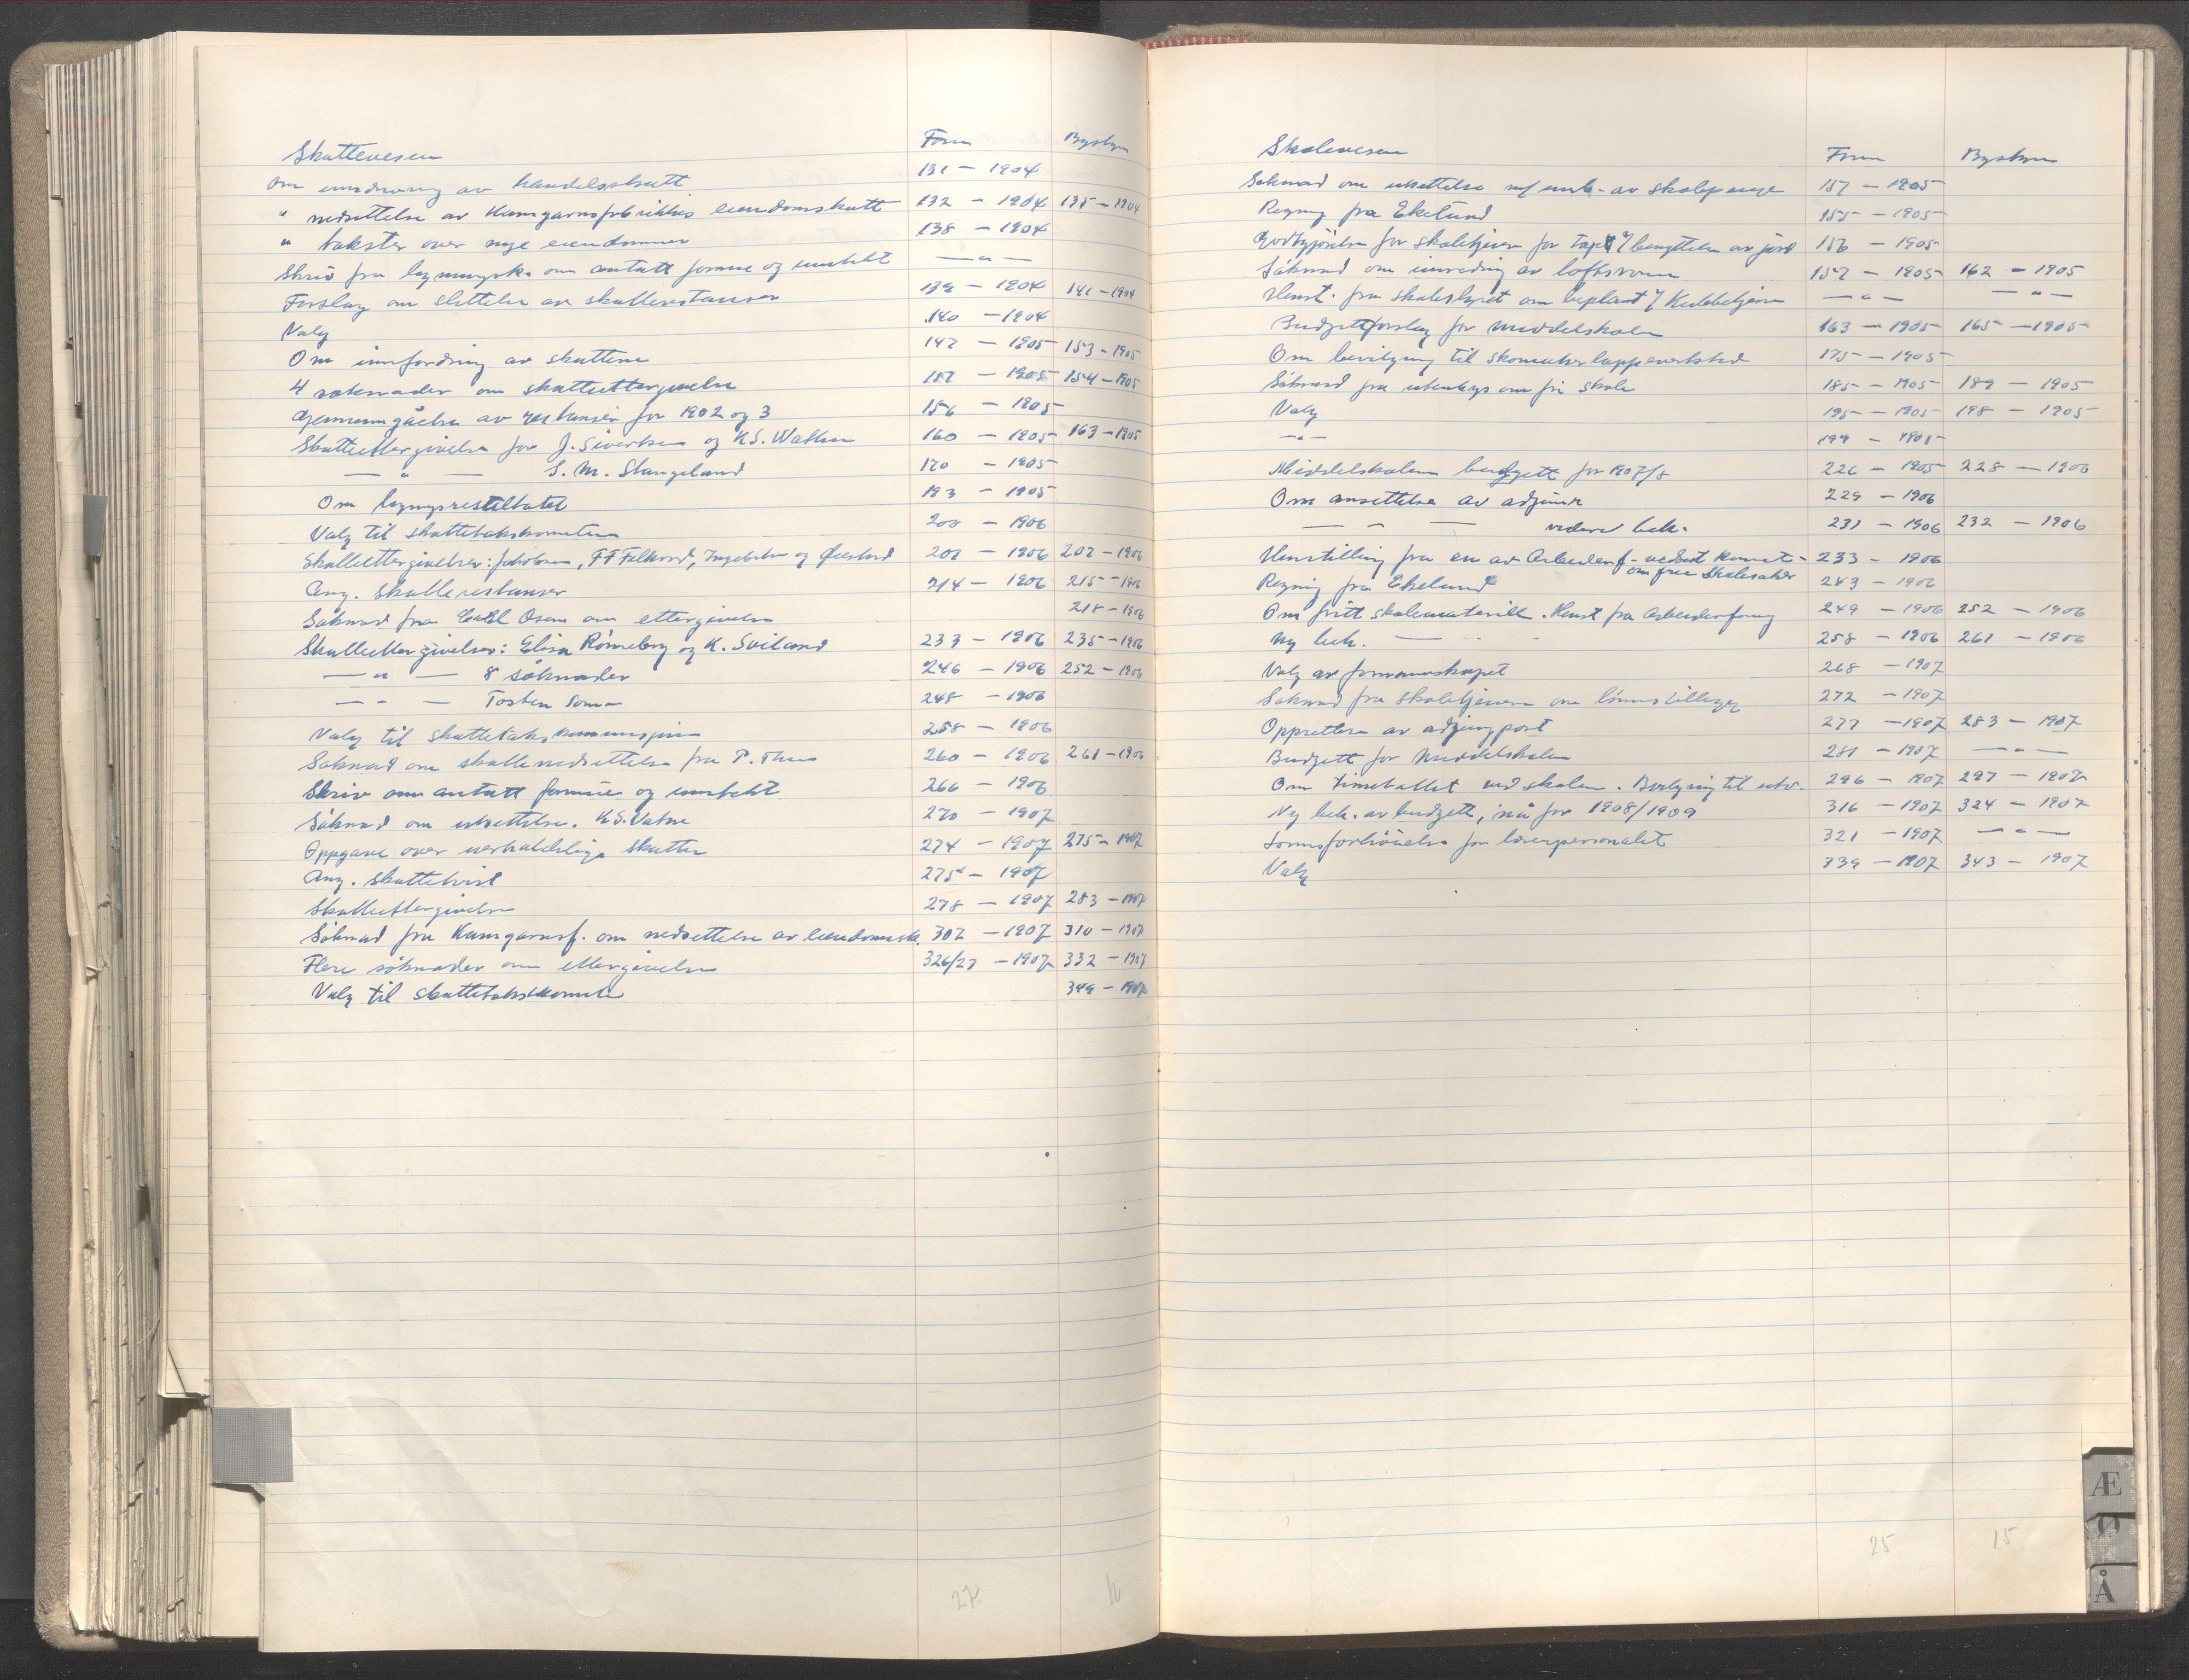 Skattevesen Form Bystyre
Om inndrivning av handelsskatt 131 - 1904
" nedsettelse av Kamgarnsfabrikkis eiendomskatt 132 - 1904 135 - 1904
" takster over nye eiendommer 138 - 1904
Skriv fra om antatt formue og inntekt — " —
Forslag om slettelse av skatterestanser 139 - 1904 141 - 1904
Valg 140 - 1904
Om innfordring av skattene 147 - 1905 153 - 1905
4 søknader om skatteettergivelse 152 - 1905 154 - 1905
Gjennemgåelse av restanser for 1902 og 3 156 - 1905
Skatteettergivelse for J. Sivertsen og K.S. Wathne 160 - 1905 163 - 1905
— " — S. M. Stangeland 170 - 1905
Om 193 - 1905
Valg til skattetakstkomiteen 200 - 1906
Skatteettergivelser: Jakobsen, FF Falkeid, Ingebretsen og 202 - 1906 207 - 1906
Ang. skatterestanser 214 - 1906 215 - 1906
Søknad fra Carl Osen om ettergivelse 218 - 1906
Skatteettergivelser: Elisa Rønneberg og K. Sviland 233 - 1906 235 - 1906
— " — 8 søknader 246 - 1906 252 - 1906
— " — Tosten Soma 248 - 1906
Valg til skattetakstkommisjon 258 - 1906
Søknad om skattenedsettelse fra P. Thu 260 - 1906 261 - 1906
Skriv om antatt formue og inntekt 266 - 1906
Søknad om utsettelse. K.S. Vatne 270 - 1907
Oppgave over uerholdelige skatter 274 - 1907 275 - 1907
Ang. skattetvist 275 - 1907
Skatteettergivelse 278 - 1907 283 - 1907
Søknad fra Kamgarnsf. om nedsettelse av eiendomssk. 302 - 1907 310 - 1907
Flere søknader om ettergivelse 326/27 - 1907 332 - 1907
Valg til skattetakstkomite 349 - 1907
27 16
Skolevesen Form Bystyre
Søknad om utsettelse m/ innb. av skolepenge 157 - 1905
Regning fra Ekelund 155 - 1905
Godtgjørelse for skoletjeneren for tapt v/ benyttelse av jord 156 - 1905
Søknad om innredning av loftsrom 157 - 1905 162 - 1905
Henst. fra skolestyret om beplant. — " — — " —
Budgettforslag for middelskolen 163 - 1905 165 - 1905
Om bevilgning til skomakerlappeverksted 175 - 1905
Søknad fra utenbys om fri skole 185 - 1905 189 - 1905
Valg 195 - 1905 198 - 1905
— " — 199 - 1905
Middelskolens budgett for 1907/8 226 - 1905 228 - 1906
Om ansettelse av adjunkt 229 - 1906
— " — videre beh. 231 - 1906 232 - 1906
Henstilling fra en av Arbeiderf. nedsat komit- 233 - 1906
om frie skolesaker
Regning fra Ekelund 243 - 1906
Om fritt skolemateriell. Henst fra Arbeiderforeng 249 - 1906 252 - 1906
Ny beh. — " — 258 - 1906 261 - 1906
Valg av formannskapet 268 - 1907
Søknad fra skoletjeneren om lønnstillegg 272 - 1907
Opprettelse av adjungtpost 277 - 1907 283 - 1907
Budgett for Middelskolen 281 - 1907 — " —
Om timetallet ved skolen. Bevilgning til utv. 296 - 1907 297 - 1907
Ny beh. av budgett, nå for 1908/1909 316 - 1907 324 - 1907
Lønnsforhøielse for lærerpersonalet 321 - 1907 — " —
Valg 339 - 1907 343 - 1907
25 15
Æ
Ø
Å